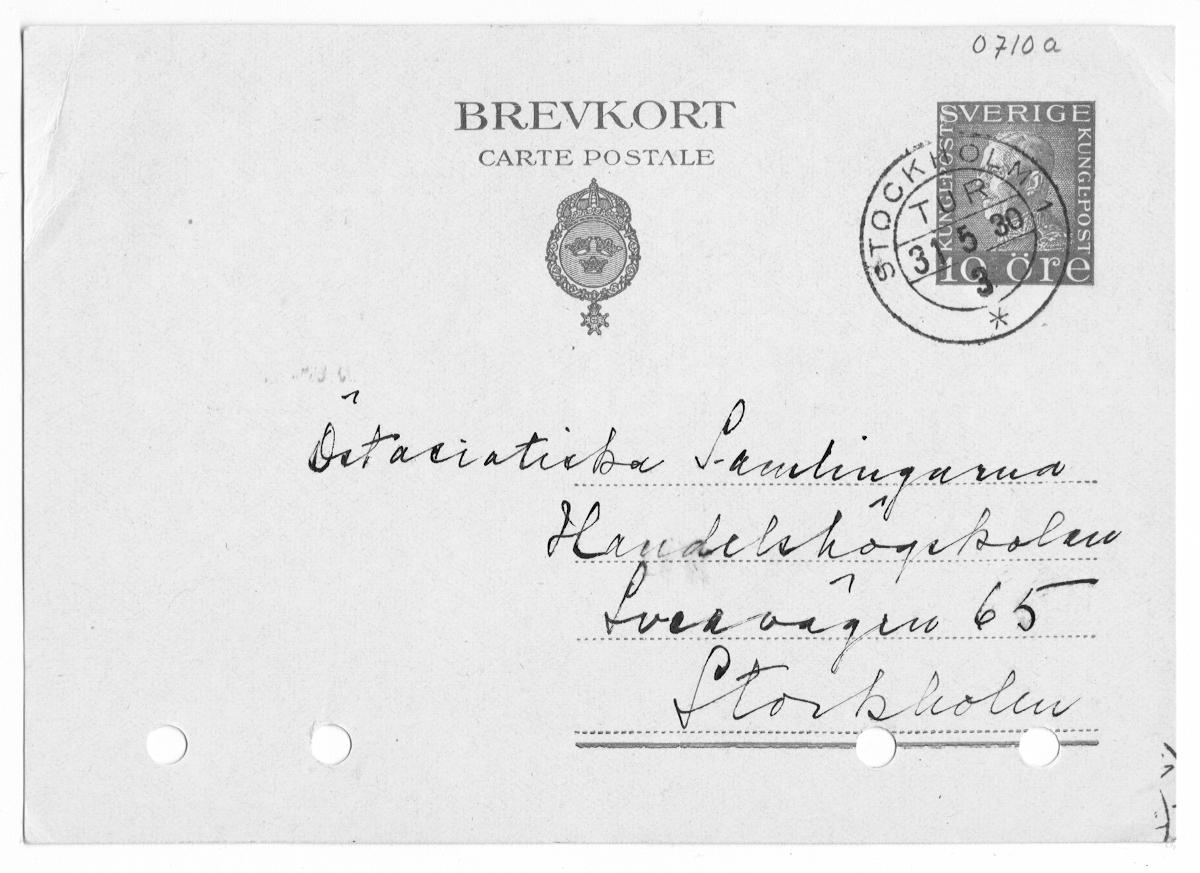 0710a
BREVKORT
CARTE POSTALE
SVERIGE
KUNGL·POST
KUNGL·POST
10 öre
STOCKHOLM 1
TUR
31 5 30
3
Östasiatiska Samlingarna
Handelshögskolan
Sveavägen 65
Stockholm